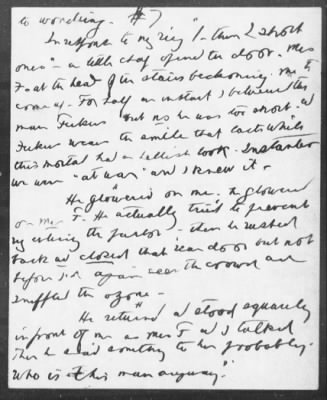 to wording. #7
In response to my ring "1 - then 2 short
ones" - a little chap opened the door - Mrs
F at the head of the stairs beckoning me to
come up. For half an instant I believed the
man Fickers but no he was too short. and
Fickers wears the smile that lasts while
this mortal had a hellish look. Instanter
we were "at war" and I knew it -
He glowered on me. He glowered
on Mrs F. He actually tried to prevent
my entering the parlor - then he rushed
back and closed that rear door but not
before I'd again seen the crowd and
sniffed the ozone -
He returned and stood squarely
in front of me as Mrs F and I talked
Then he said something to her probably -
Who is this man anyway."